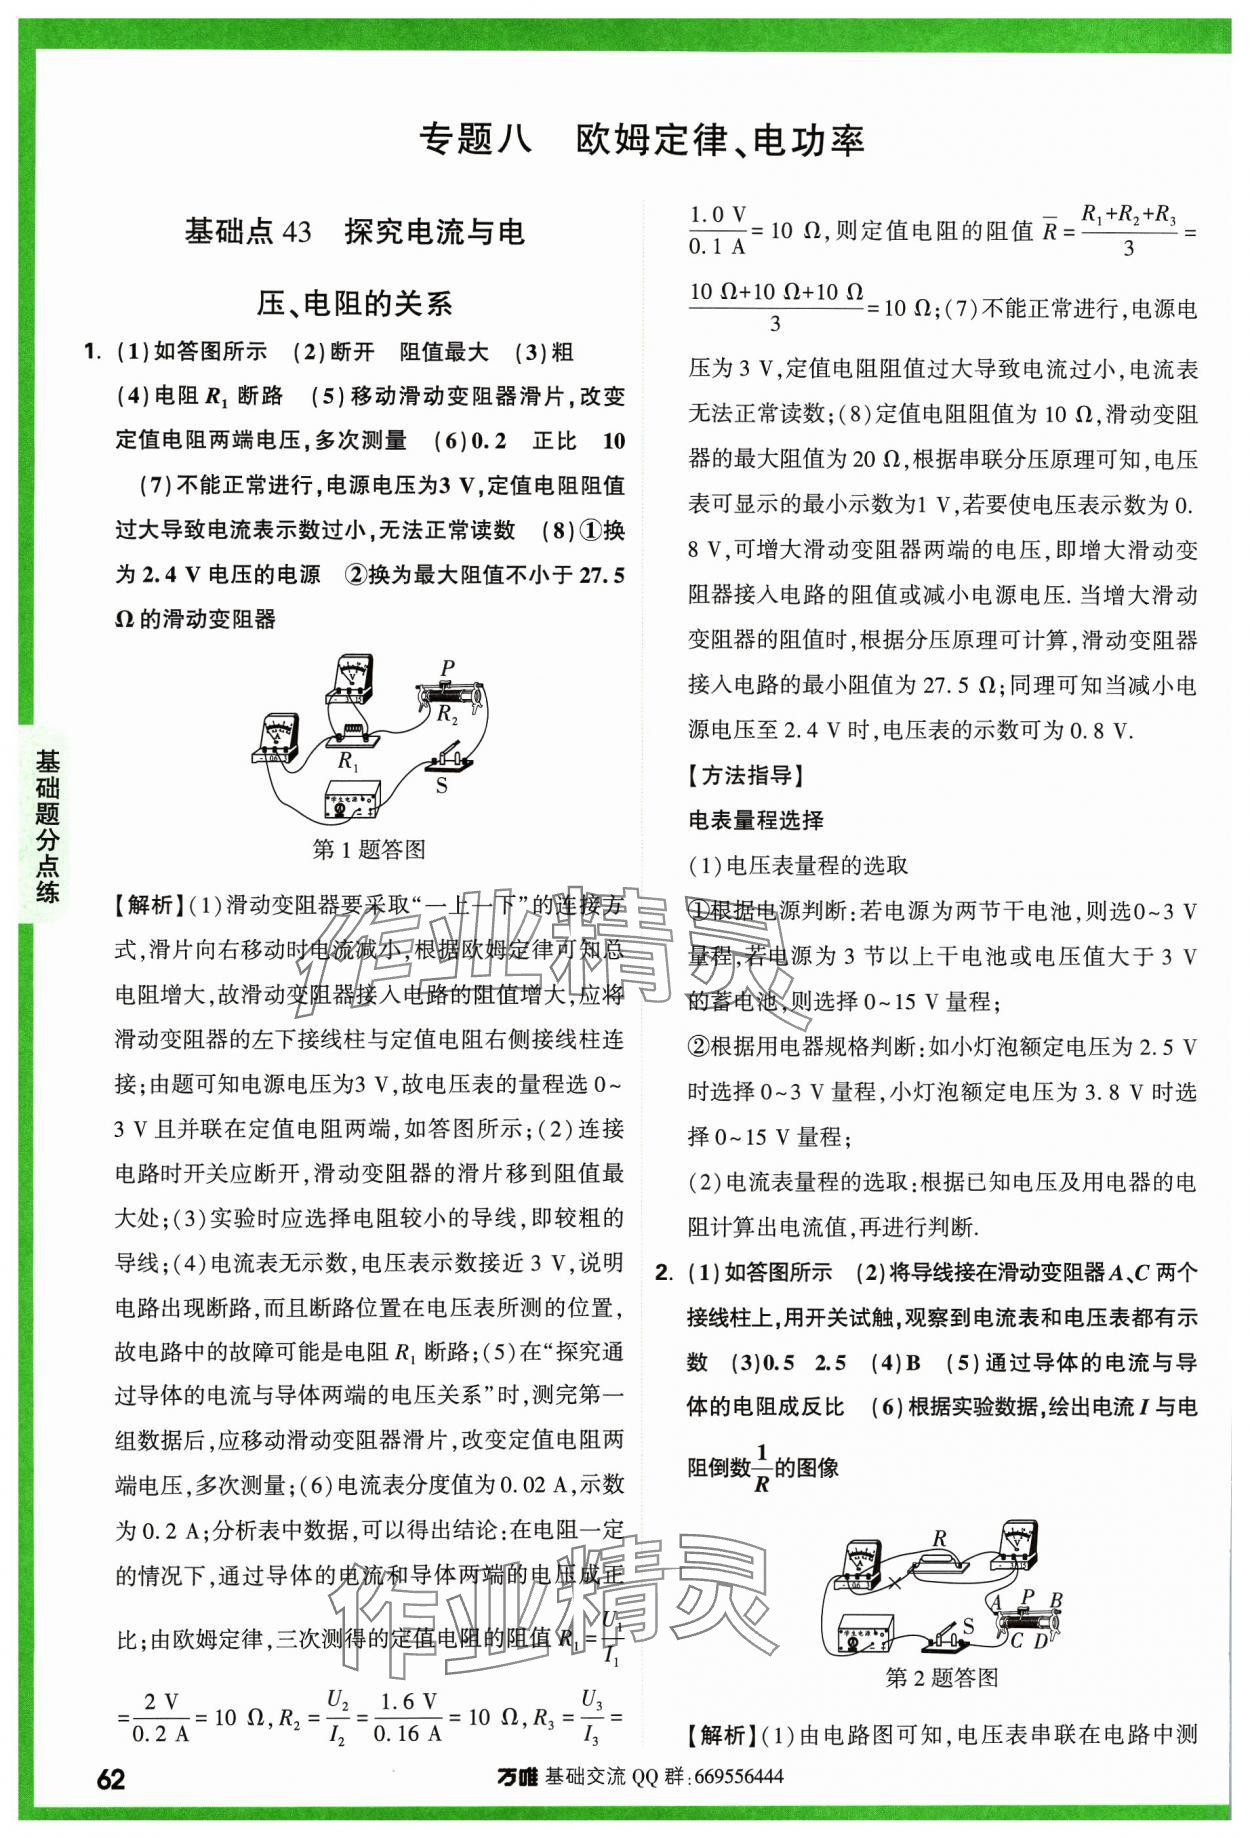 专题八 欧姆定律、电功率
基础点 43 探究电流与电
压、电阻的关系
1. (1)如答图所示 (2)断开 阻值最大 (3)粗
(4)电阻 R₁ 断路 (5)移动滑动变阻器滑片,改变
定值电阻两端电压,多次测量 (6)0.2 正比 10
(7)不能正常进行,电源电压为3 V,定值电阻阻值
过大导致电流表示数过小,无法正常读数 (8)①换
为 2.4 V 电压的电源 ②换为最大阻值不小于 27.5
Ω 的滑动变阻器
P
R₂
R₁
S
学生电源
第 1 题答图
【解析】(1)滑动变阻器要采取“一上一下”的连接方
式,滑片向右移动时电流减小,根据欧姆定律可知总
电阻增大,故滑动变阻器接入电路的阻值增大,应将
滑动变阻器的左下接线柱与定值电阻右侧接线柱连
接;由题可知电源电压为3 V,故电压表的量程选 0~
3 V 且并联在定值电阻两端,如答图所示;(2)连接
电路时开关应断开,滑动变阻器的滑片移到阻值最
大处;(3)实验时应选择电阻较小的导线,即较粗的
导线;(4)电流表无示数,电压表示数接近 3 V,说明
电路出现断路,而且断路位置在电压表所测的位置,
故电路中的故障可能是电阻 R₁ 断路;(5)在“探究通
过导体的电流与导体两端的电压关系”时,测完第一
组数据后,应移动滑动变阻器滑片,改变定值电阻两
端电压,多次测量;(6)电流表分度值为 0.02 A,示数
为 0.2 A;分析表中数据,可以得出结论:在电阻一定
的情况下,通过导体的电流和导体两端的电压成正
比;由欧姆定律,三次测得的定值电阻的阻值 R₁ = U₁/I₁
= 2 V/0.2 A = 10 Ω,R₂ = U₂/I₂ = 1.6 V/0.16 A = 10 Ω,R₃ = U₃/I₃ =
1.0 V/0.1 A = 10 Ω,则定值电阻的阻值 R̄ = (R₁+R₂+R₃)/3 =
(10 Ω+10 Ω+10 Ω)/3 = 10 Ω;(7)不能正常进行,电源电
压为 3 V,定值电阻阻值过大导致电流过小,电流表
无法正常读数;(8)定值电阻阻值为 10 Ω,滑动变阻
器的最大阻值为 20 Ω,根据串联分压原理可知,电压
表可显示的最小示数为1 V,若要使电压表示数为 0.
8 V,可增大滑动变阻器两端的电压,即增大滑动变
阻器接入电路的阻值或减小电源电压. 当增大滑动
变阻器的阻值时,根据分压原理可计算,滑动变阻器
接入电路的最小阻值为 27.5 Ω;同理可知当减小电
源电压至 2.4 V 时,电压表的示数可为 0.8 V.
【方法指导】
电表量程选择
(1)电压表量程的选取
①根据电源判断:若电源为两节干电池,则选0~3 V
量程,若电源为 3 节以上干电池或电压值大于 3 V
的蓄电池,则选择 0~15 V 量程;
②根据用电器规格判断:如小灯泡额定电压为 2.5 V
时选择 0~3 V 量程,小灯泡额定电压为 3.8 V时选
择 0~15 V 量程;
(2)电流表量程的选取:根据已知电压及用电器的电
阻计算出电流值,再进行判断.
2. (1)如答图所示 (2)将导线接在滑动变阻器 A、C 两个
接线柱上,用开关试触,观察到电流表和电压表都有示
数 (3)0.5 2.5 (4)B (5)通过导体的电流与导
体的电阻成反比 (6)根据实验数据,绘出电流 I 与电
阻倒数 1/R 的图像
R
A P B
C D
S
学生电源
第 2 题答图
【解析】(1)由电路图可知,电压表串联在电路中测
基础题分点练
62
万唯 基础交流 QQ 群:669556444
作业精灵
作业精灵